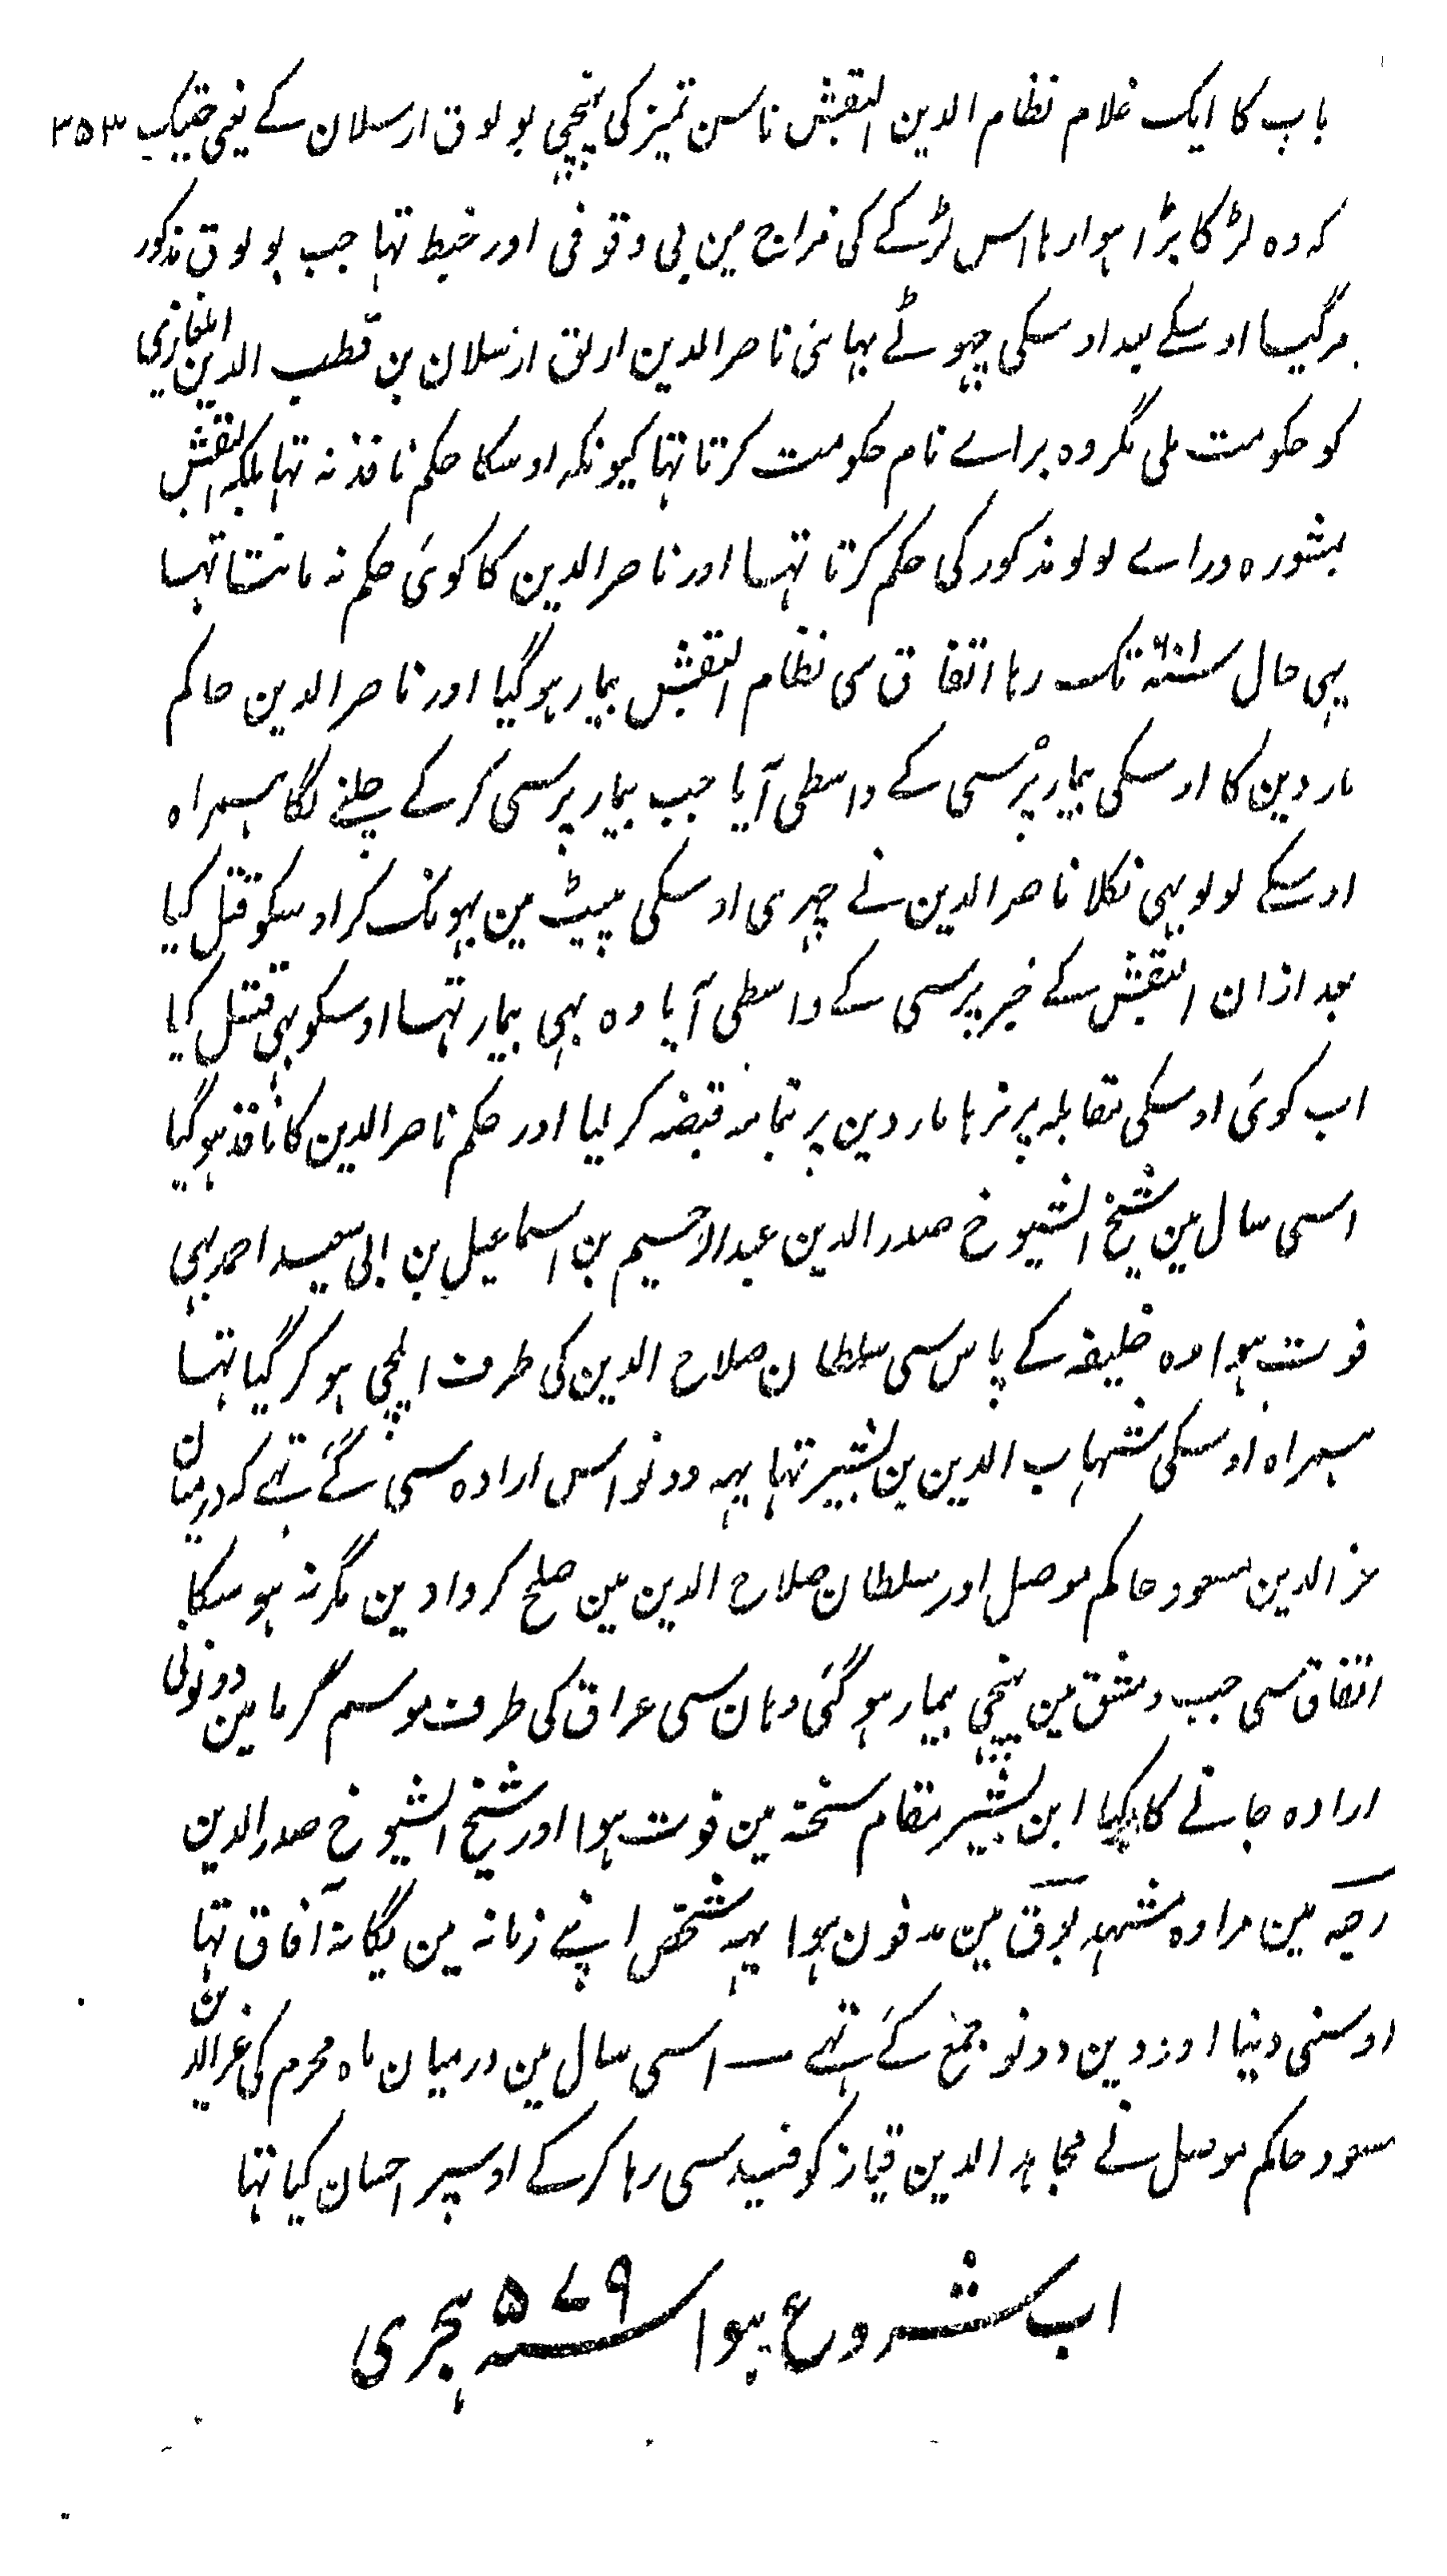 باپ کا ایک غلام نظام الدین البقش تاسن تمیز کی پہنچی بولوق ارسلان کے یعنی جبتک ۳۵۳
کہ وہ لڑکا بڑا ہوا رہا اس لڑکے کی مزاج مین بی وقوفی اور خبط تہا جب بولوق مذکور
مرگیا اوسکے بعد اوسکی چہوٹے بہائی ناصر الدین ارتق ارسلان بن قطب الدین الغازی
کو حکومت ملی مگر وہ براے نام حکومت کرتا تہا کیونکہ اوسکا حکم نافذ نہ تہا بلکہ البقش
بمشورہ وراے لولو مذکور کی حکم کرتا تہا اور ناصر الدین کا کوئی حکم نہ مانتا تہا
یہی حال سنہ۶۰۱ تک رہا اتفاق سی نظام البقش بیمار ہوگیا اور ناصر الدین حاکم
ماردین کا اوسکی بیمار پرسی کے واسطی آیا جب بیمار پرسی کر کے چلنے لگا ہمراہ
اوسکے لولو بہی نکلا ناصر الدین نے چہری اوسکی پیٹ مین بہونک کر اوسکو قتل کیا
بعد ازان البقش کے خبر پرسی کے واسطی آیا وہ بہی بیمار تہا اوسکو بہی قتل کیا
اب کوئی اوسکی مقابلہ پر نرہا ماردین پر بتمامہ قبضہ کر لیا اور حکم ناصر الدین کا نافذ ہوگیا
اسی سال مین شیخ الشیوخ صدر الدین عبد الرحیم بن اسماعیل بن ابی سعید احمد بہی
فوت ہوا وہ خلیفہ کے پاس سی سلطان صلاح الدین کی طرف ایلچی ہو کر گیا تہا
ہمراہ اوسکی شہاب الدین بن بشیر تہا یہہ دونو اس ارادہ سی گئے تہے کہ درمیان
عز الدین مسعود حاکم موصل اور سلطان صلاح الدین مین صلح کروا دین مگر نہ ہو سکا
اتفاق سی جب دمشق مین پہنچی بیمار ہو گئی وہان سی عراق کی طرف موسم گرما مین دونونی
ارادہ جانے کا کیا ابن بشیر مقام سخنہ مین فوت ہوا اور شیخ الشیوخ صدر الدین
رحبہ مین مرا وہ مشہد بوق مین مدفون ہوا یہہ شخص اپنے زمانہ مین یگانہ آفاق تہا
اوسنی دنیا اور دین دونو جمع کئے تہے — اسی سال مین درمیان ماہ محرم کی عز الدین
مسعود حاکم موصل نے مجاہد الدین قیماز کو قید سی رہا کر کے اوسپر احسان کیا تہا
اب شروع ہوا سنہ ۵۷۹ ہجری